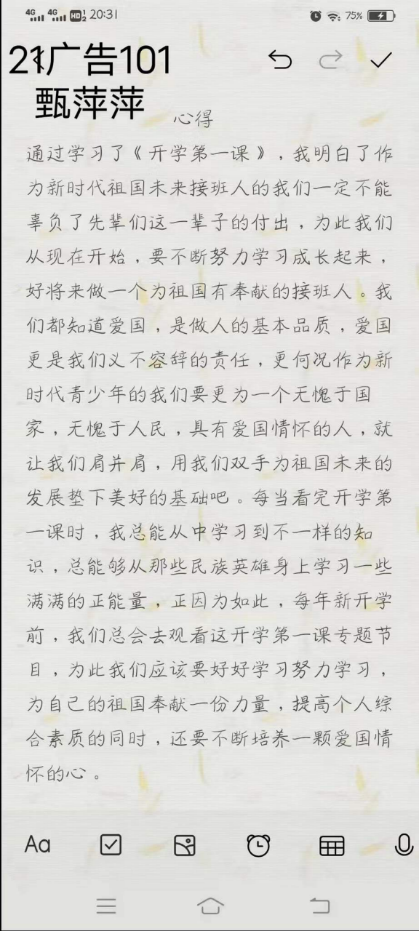 4G 4G HD 20:31 75%
21广告101
甄萍萍
心得
通过学习了《开学第一课》，我明白了作
为新时代祖国未来接班人的我们一定不能
辜负了先辈们这一辈子的付出，为此我们
从现在开始，要不断努力学习成长起来，
好将来做一个为祖国有奉献的接班人。我
们都知道爱国，是做人的基本品质，爱国
更是我们义不容辞的责任，更何况作为新
时代青少年的我们要更为一个无愧于国
家，无愧于人民，具有爱国情怀的人，就
让我们肩并肩，用我们双手为祖国未来的
发展垫下美好的基础吧。每当看完开学第
一课时，我总能从中学习到不一样的知
识，总能够从那些民族英雄身上学习一些
满满的正能量，正因为如此，每年新开学
前，我们总会去观看这开学第一课专题节
目，为此我们应该要好好学习努力学习，
为自己的祖国奉献一份力量，提高个人综
合素质的同时，还要不断培养一颗爱国情
怀的心。
Aa